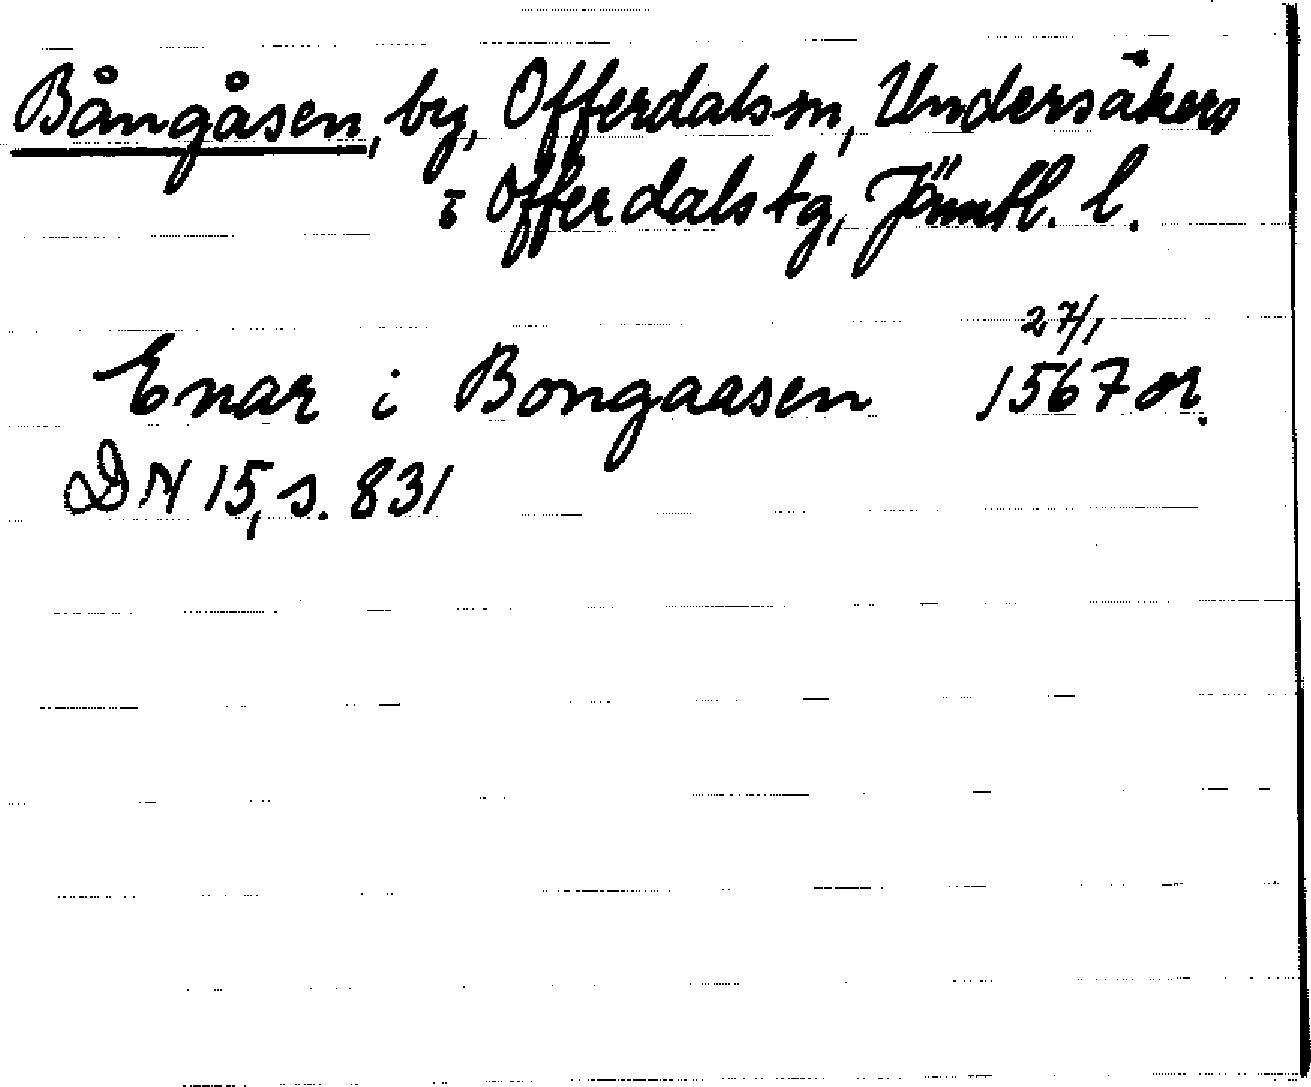 Bångåsen, by, Offerdals sn, Undersåkers
o Offerdals tg, Jämtl. l.
27/1
Enar i Bongaasen 1567 or.
DN 15, s. 831